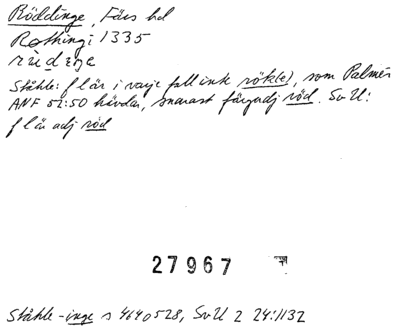 Röddinge, Färs hd
Rothingi 1335
rüdige
Ståhle: f l är i varje fall ink rök(e), som Palmér
ANF 52:50 hävdar, snarast färgadj röd. SvU:
f l är adj röd
27967
Ståhle -inge s 464 o 528, SvU 2 24:1132